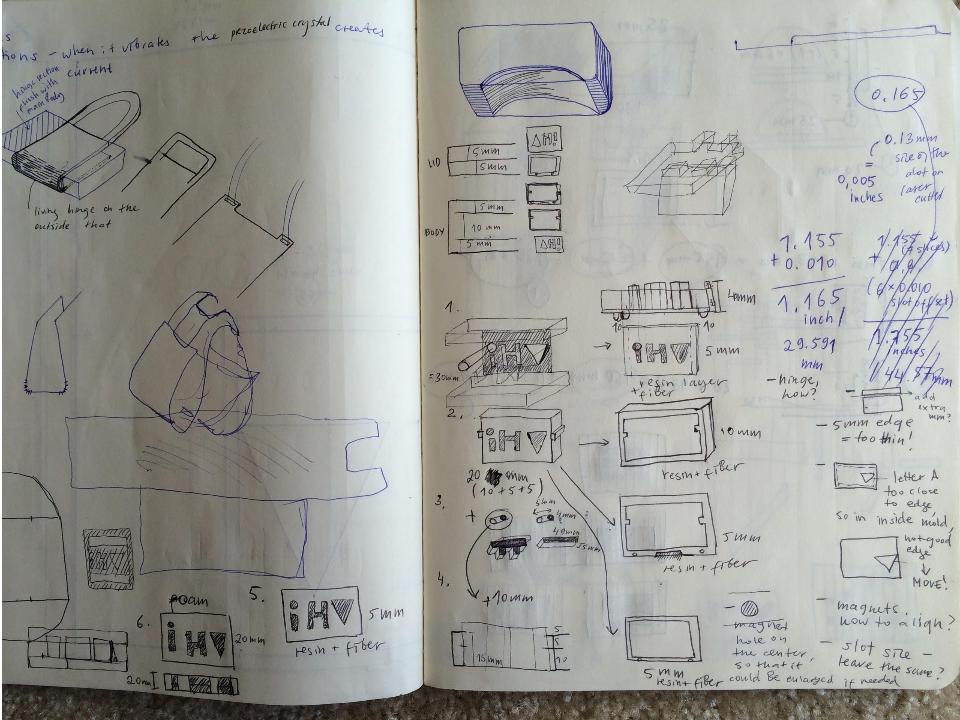 s
tions - when it vibrates the piezoelectric crystal creates
current
hinge section
flush with
main body
living hinge on the
outside that
6.
foam
20mm
20mm
5.
iH
5mm
resin + fiber
LID
5mm
5mm
BODY
5mm
10mm
5mm
ΔH!
ΔH!
1.
≈30mm
iH
4mm
10
10
iH
5mm
resin layer
+ fiber
2.
iH
20 mm
(10+5+5)
10mm
resin + fiber
3.
+
4mm
5mm
resin + fiber
4.
+10mm
15mm
5
5
10
5mm
resin + fiber
0.165
0.13mm
=
0,005
inches
size of the
dot on
laser
cutter
1.155
+ 0.010
1.165
inch/
29.591
mm
1.155
+
(6 x 0.010
slot offset)
1.755
inches
44.57mm
- hinge,
how?
add
extra
mm?
- 5mm edge
= too thin!
- letter A
too close
to edge,
so in inside mold,
not good
edge
MOVE!
- magnets,
how to align?
- slot size -
leave the same?
- magnet
hole on
the center,
so that it
could be enlarged if needed